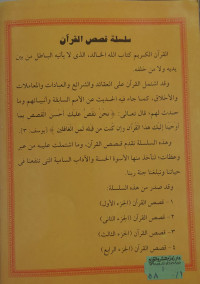 سلسلة قصص القرآن
القرآن الكريم كتاب الله الخالد، الذى لا يأتيه الباطل من بين
يديه ولا من خلفه
وقد اشتمل القرآن على العقائد والشرائع والعبادات والمعاملات
والأخلاق، كما جاء فيه الحديث عن الأمم السابقة وأنبيائهم وما
حدث لهم، قال تعالى: ﴿ نحن نقص عليك أحسن القصص بما
أوحينا إليك هذا القرآن وإن كنت من قبله لمن الغافلين ﴾ [يوسف: ٣].
وهذه السلسلة تقدم قصص القرآن، وما اشتملت عليه من عبر
وعظات؛ لنأخذ منها الأسوة الحسنة والآداب السامية التى تنفعنا فى
حياتنا وتبلغنا جنة ربنا
وقد صدر من هذه السلسلة:
١ - قصص القرآن (الجزء الأول)
٢ - قصص القرآن (الجزء الثانى)
٣ - قصص القرآن (الجزء الثالث)
٤ - قصص القرآن (الجزء الرابع)